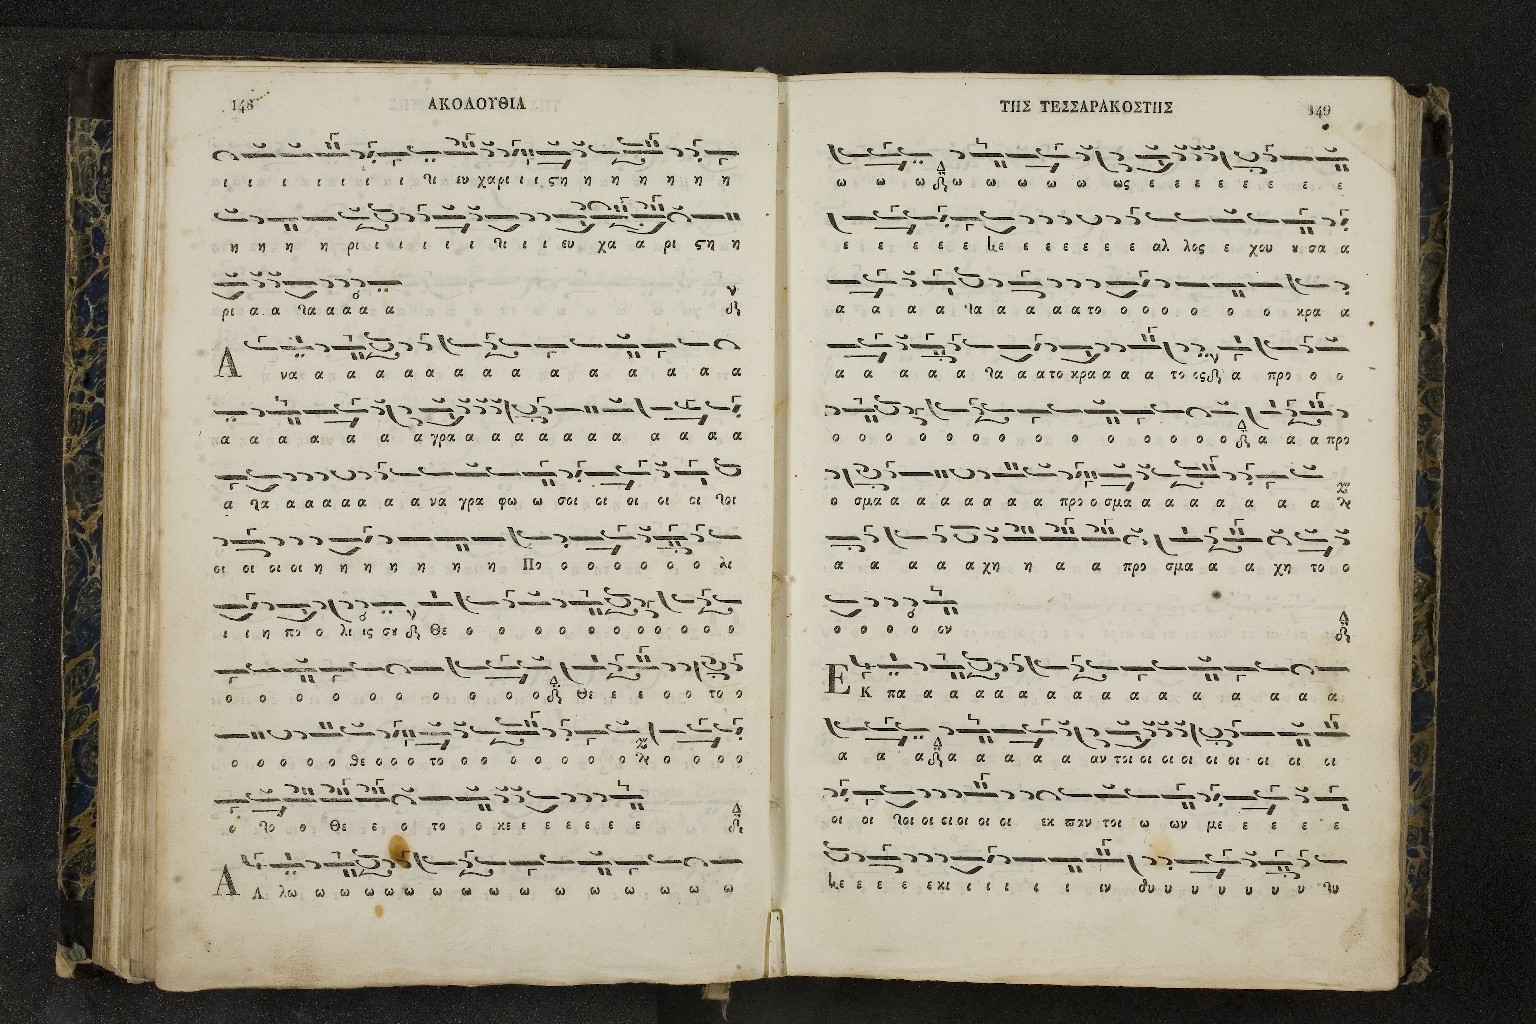 148 ΑΚΟΛΟΥΘΙΑ
ι ι ι ι ι ι ι τι ευ χαρι ι ι ςη η η η η η η
η η η η ρι ι ι ι ι ι τι ι ι ευ χα α ρι ςη η
ρι α α τα α α α α
Α να α α α α α α α α α α α α α α α
α α α α α α α γρα α α α α α α α α α α α
α τα α α α α α α να γρα φω ω σοι οι οι οι οι τοι
οι οι οι οι η η η η η η η η Πο ο ο ο ο ο ο ο λι
ι ι η πο ο λι ις ου Θε ο ο ο ο ο ο ο ο ο ο ο ο
ο ο ο ο ο ο ο ο ο ο ο ο Θε ε ε ο ο το ο
ο ο ο ο ο θε ο ο ο το ο ο ο ο ο ο ο ο ο ο ο
ο το ο Θε ε ο το ο κε ε ε ε ε ε ε
Α Λ λω ω ω ω ω ω ω ω ω ω ω ω ω ω ω ω ω
ΤΗΣ ΤΕΣΣΑΡΑΚΟΣΤΗΣ 149
ω ω ω ω ω ω ω ω ως ε ε ε ε ε ε ε ε
ε ε ε ε ε κε ε ε ε ε ε ε αλ λος ε χου υ σα α
α α α α τα α α α α το ο ο ο ο ο ο κρα α
α α α α α τα α α το κρα α α α το ος α προ ο ο
ο ο ο ο ο ο ο ο ο ο ο ο ο ο ο ο α α α προ
ο σμα α α α α α α α προ ο σμα α α α α α α α α
α α α α α χη η α α προ σμα α α α χη το ο
ο ο ο ο ον
Ε Κ πα α α α α α α α α α α α α α α
α α α α α α α α α αν τοι οι οι οι οι οι οι οι οι
οι οι τοι οι οι οι οι οι εκ παν τοι ω ων με ε ε ε ε
κε ε ε ε εκι ι ι ι ι ι ιν δυ υ υ υ υ υ υ τυ